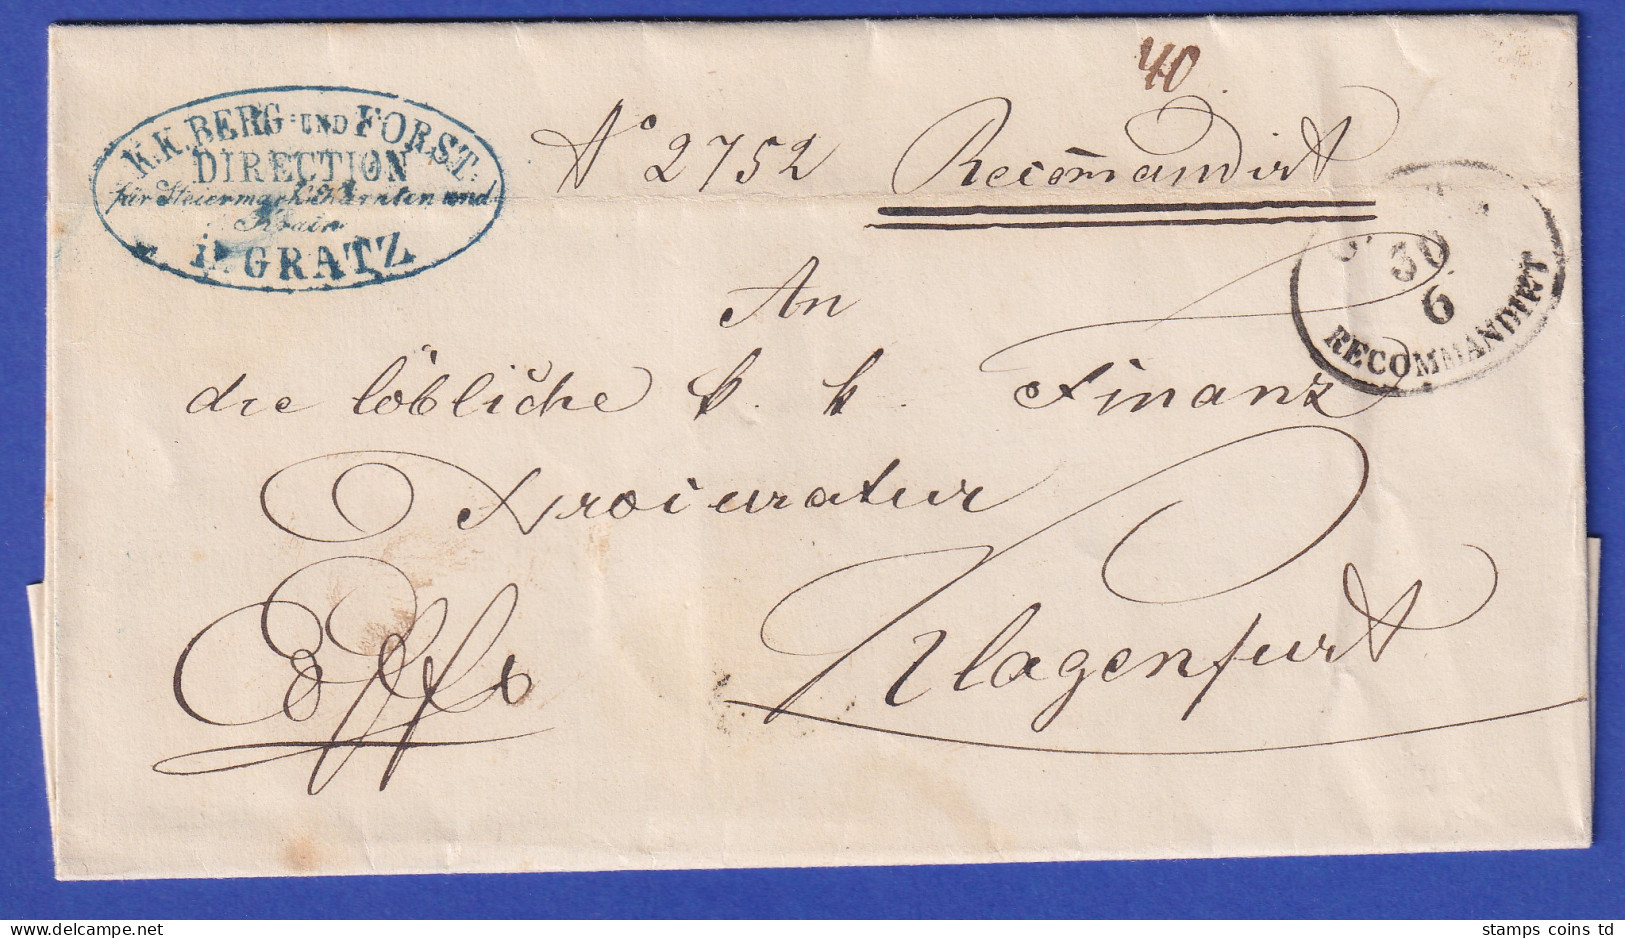 40
K.K. BERG- UND FORST-
DIRECTION
für Steiermark, Kärnten und
Krain
in GRATZ
N° 2752 Recom̄andirt
30
6
RECOMMANDIRT
An
die löbliche k. k. Finanz
Procuratur
Klagenfurt
stamps coins td